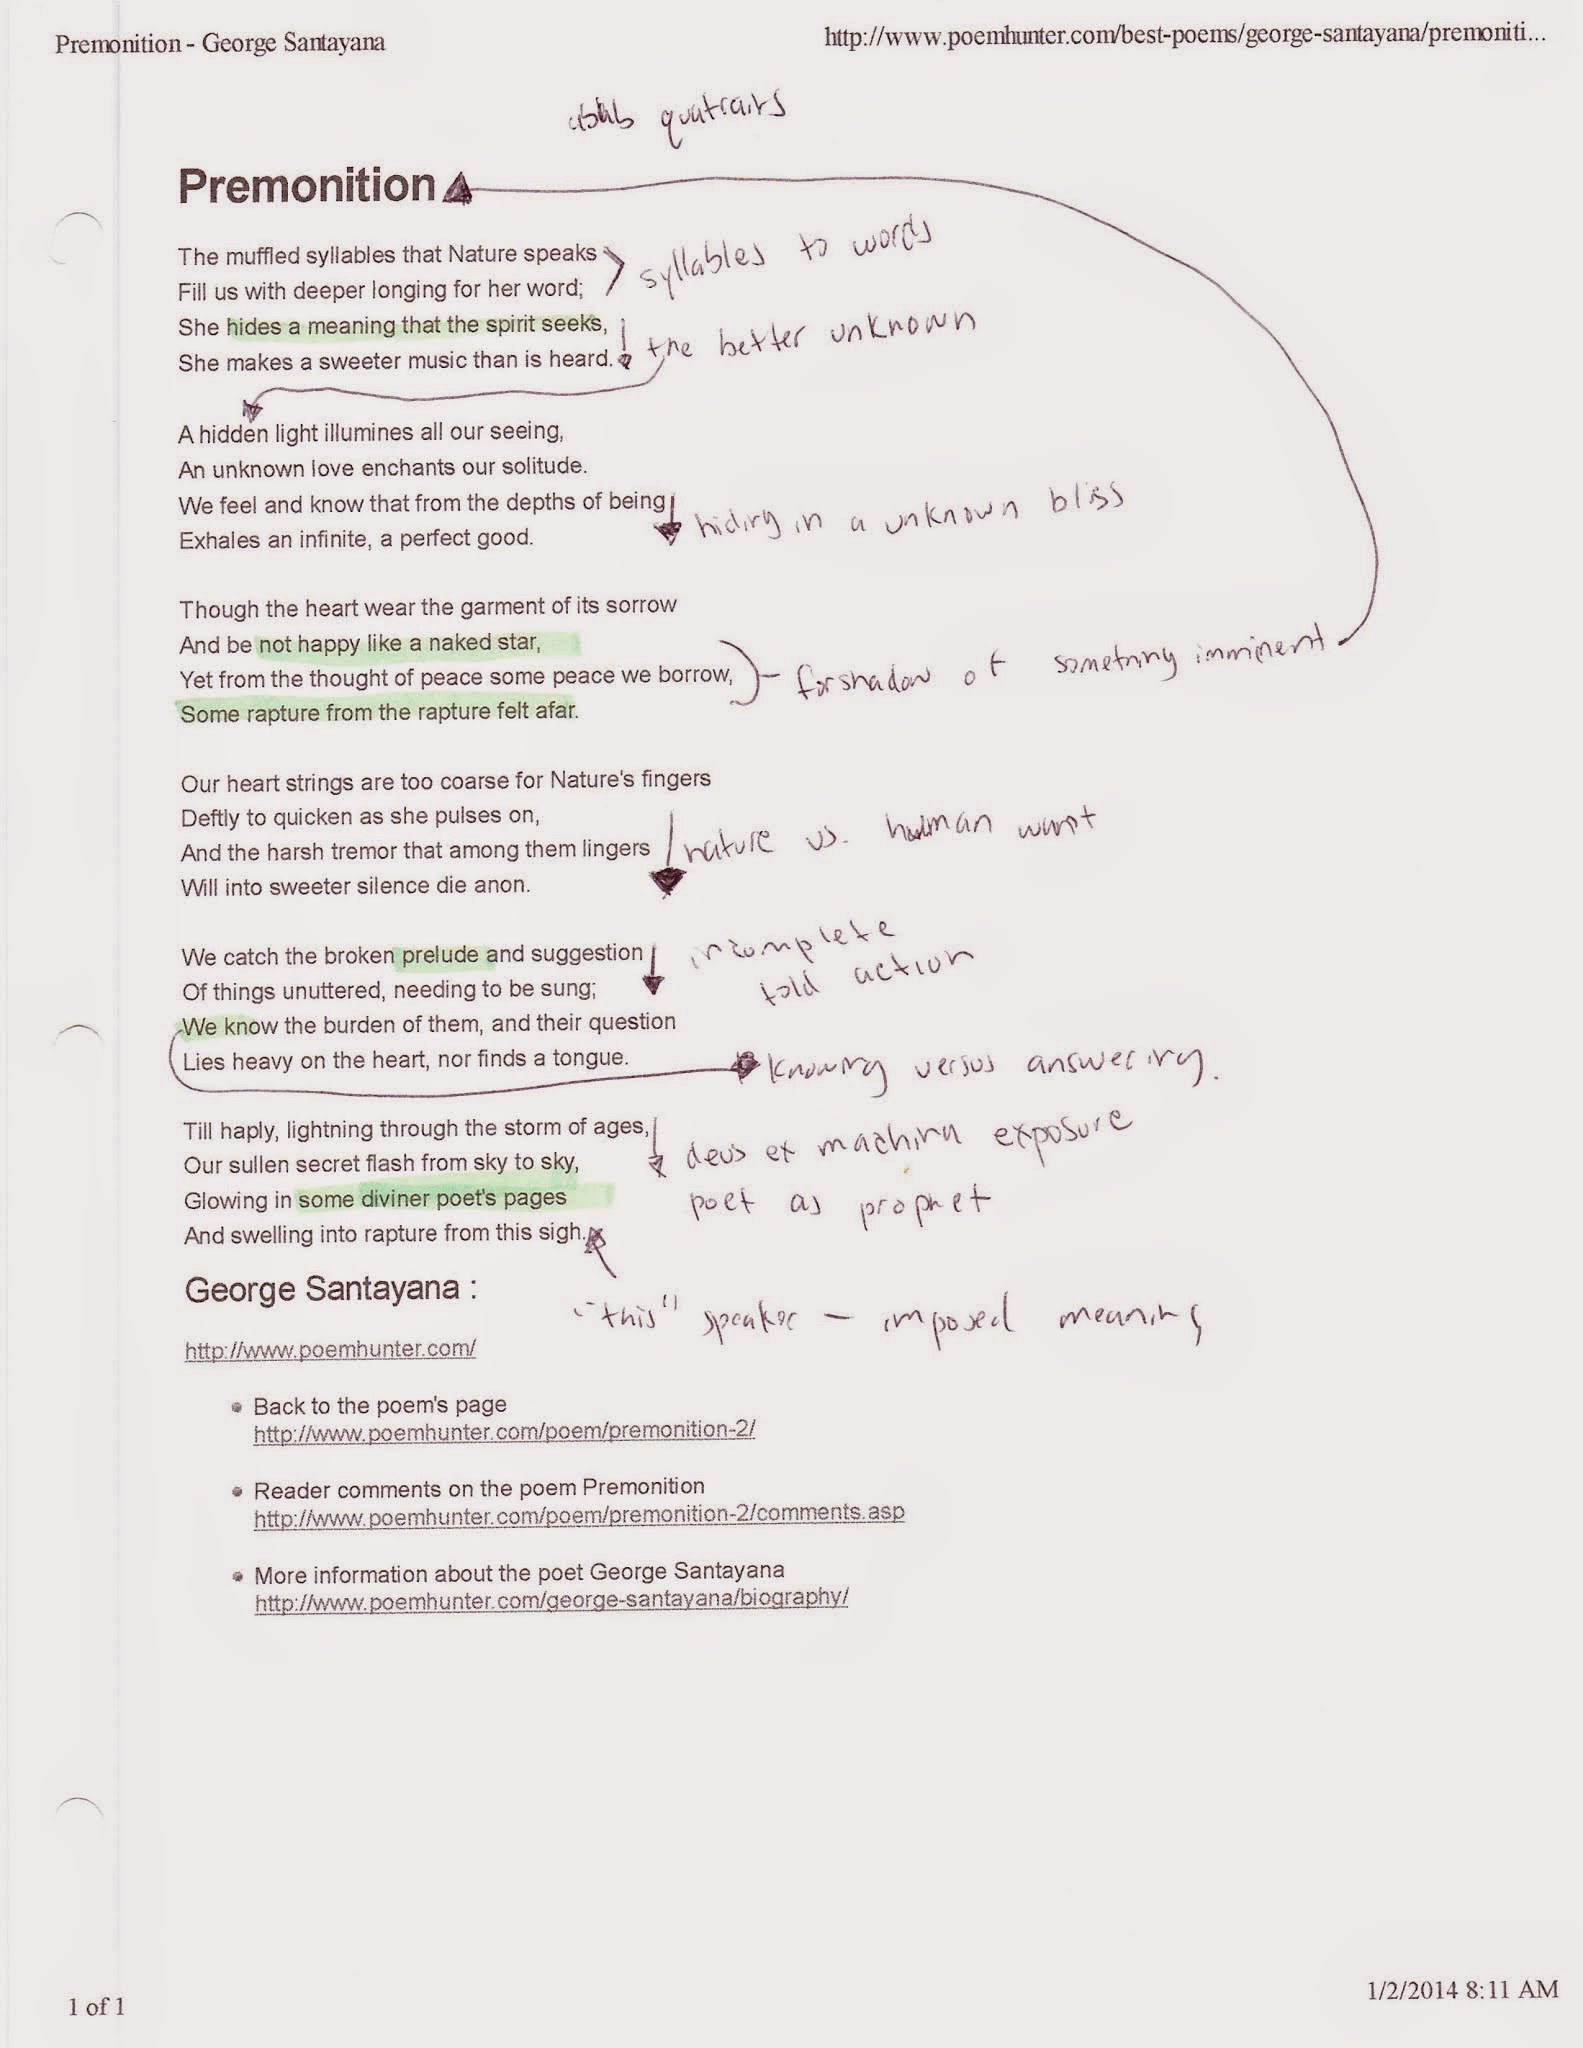 Premonition - George Santayana
http://www.poemhunter.com/best-poems/george-santayana/premoniti...
quatrains
Premonition
The muffled syllables that Nature speaks
Fill us with deeper longing for her word;
syllables to words
She hides a meaning that the spirit seeks,
She makes a sweeter music than is heard.
the better unknown
A hidden light illumines all our seeing,
An unknown love enchants our solitude.
We feel and know that from the depths of being
Exhales an infinite, a perfect good.
hiding in a unknown bliss
Though the heart wear the garment of its sorrow
And be not happy like a naked star,
Yet from the thought of peace some peace we borrow,
Some rapture from the rapture felt afar.
forshadow of something imminent
Our heart strings are too coarse for Nature's fingers
Deftly to quicken as she pulses on,
And the harsh tremor that among them lingers
Will into sweeter silence die anon.
nature vs. human want
We catch the broken prelude and suggestion
Of things unuttered, needing to be sung;
incomplete
told action
We know the burden of them, and their question
Lies heavy on the heart, nor finds a tongue.
knowing versus answering.
Till haply, lightning through the storm of ages,
Our sullen secret flash from sky to sky,
deus ex machina exposure
Glowing in some diviner poet's pages
poet as prophet
And swelling into rapture from this sigh.
George Santayana :
"this" speaker – imposed meaning
http://www.poemhunter.com/
• Back to the poem's page
http://www.poemhunter.com/poem/premonition-2/
• Reader comments on the poem Premonition
http://www.poemhunter.com/poem/premonition-2/comments.asp
• More information about the poet George Santayana
http://www.poemhunter.com/george-santayana/biography/
1 of 1
1/2/2014 8:11 AM